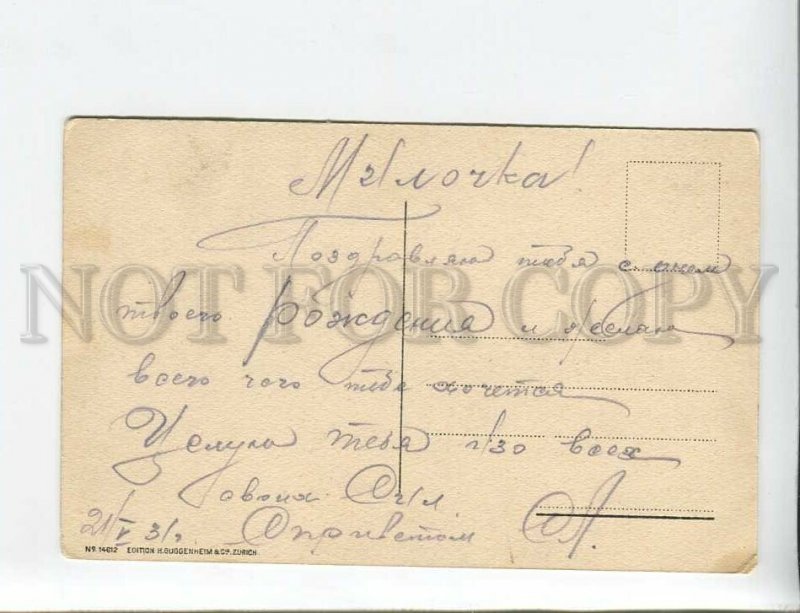 Милочка!
Поздравляю тебя с днем
твоего Рождения и желаю
всего чего тебе хочется
Целую тебя изо всех
своих сил.
21/V 31г. С приветом
№ 14612 EDITION H. GUGGENHEIM & Co., ZÜRICH.
NOT FOR COPY